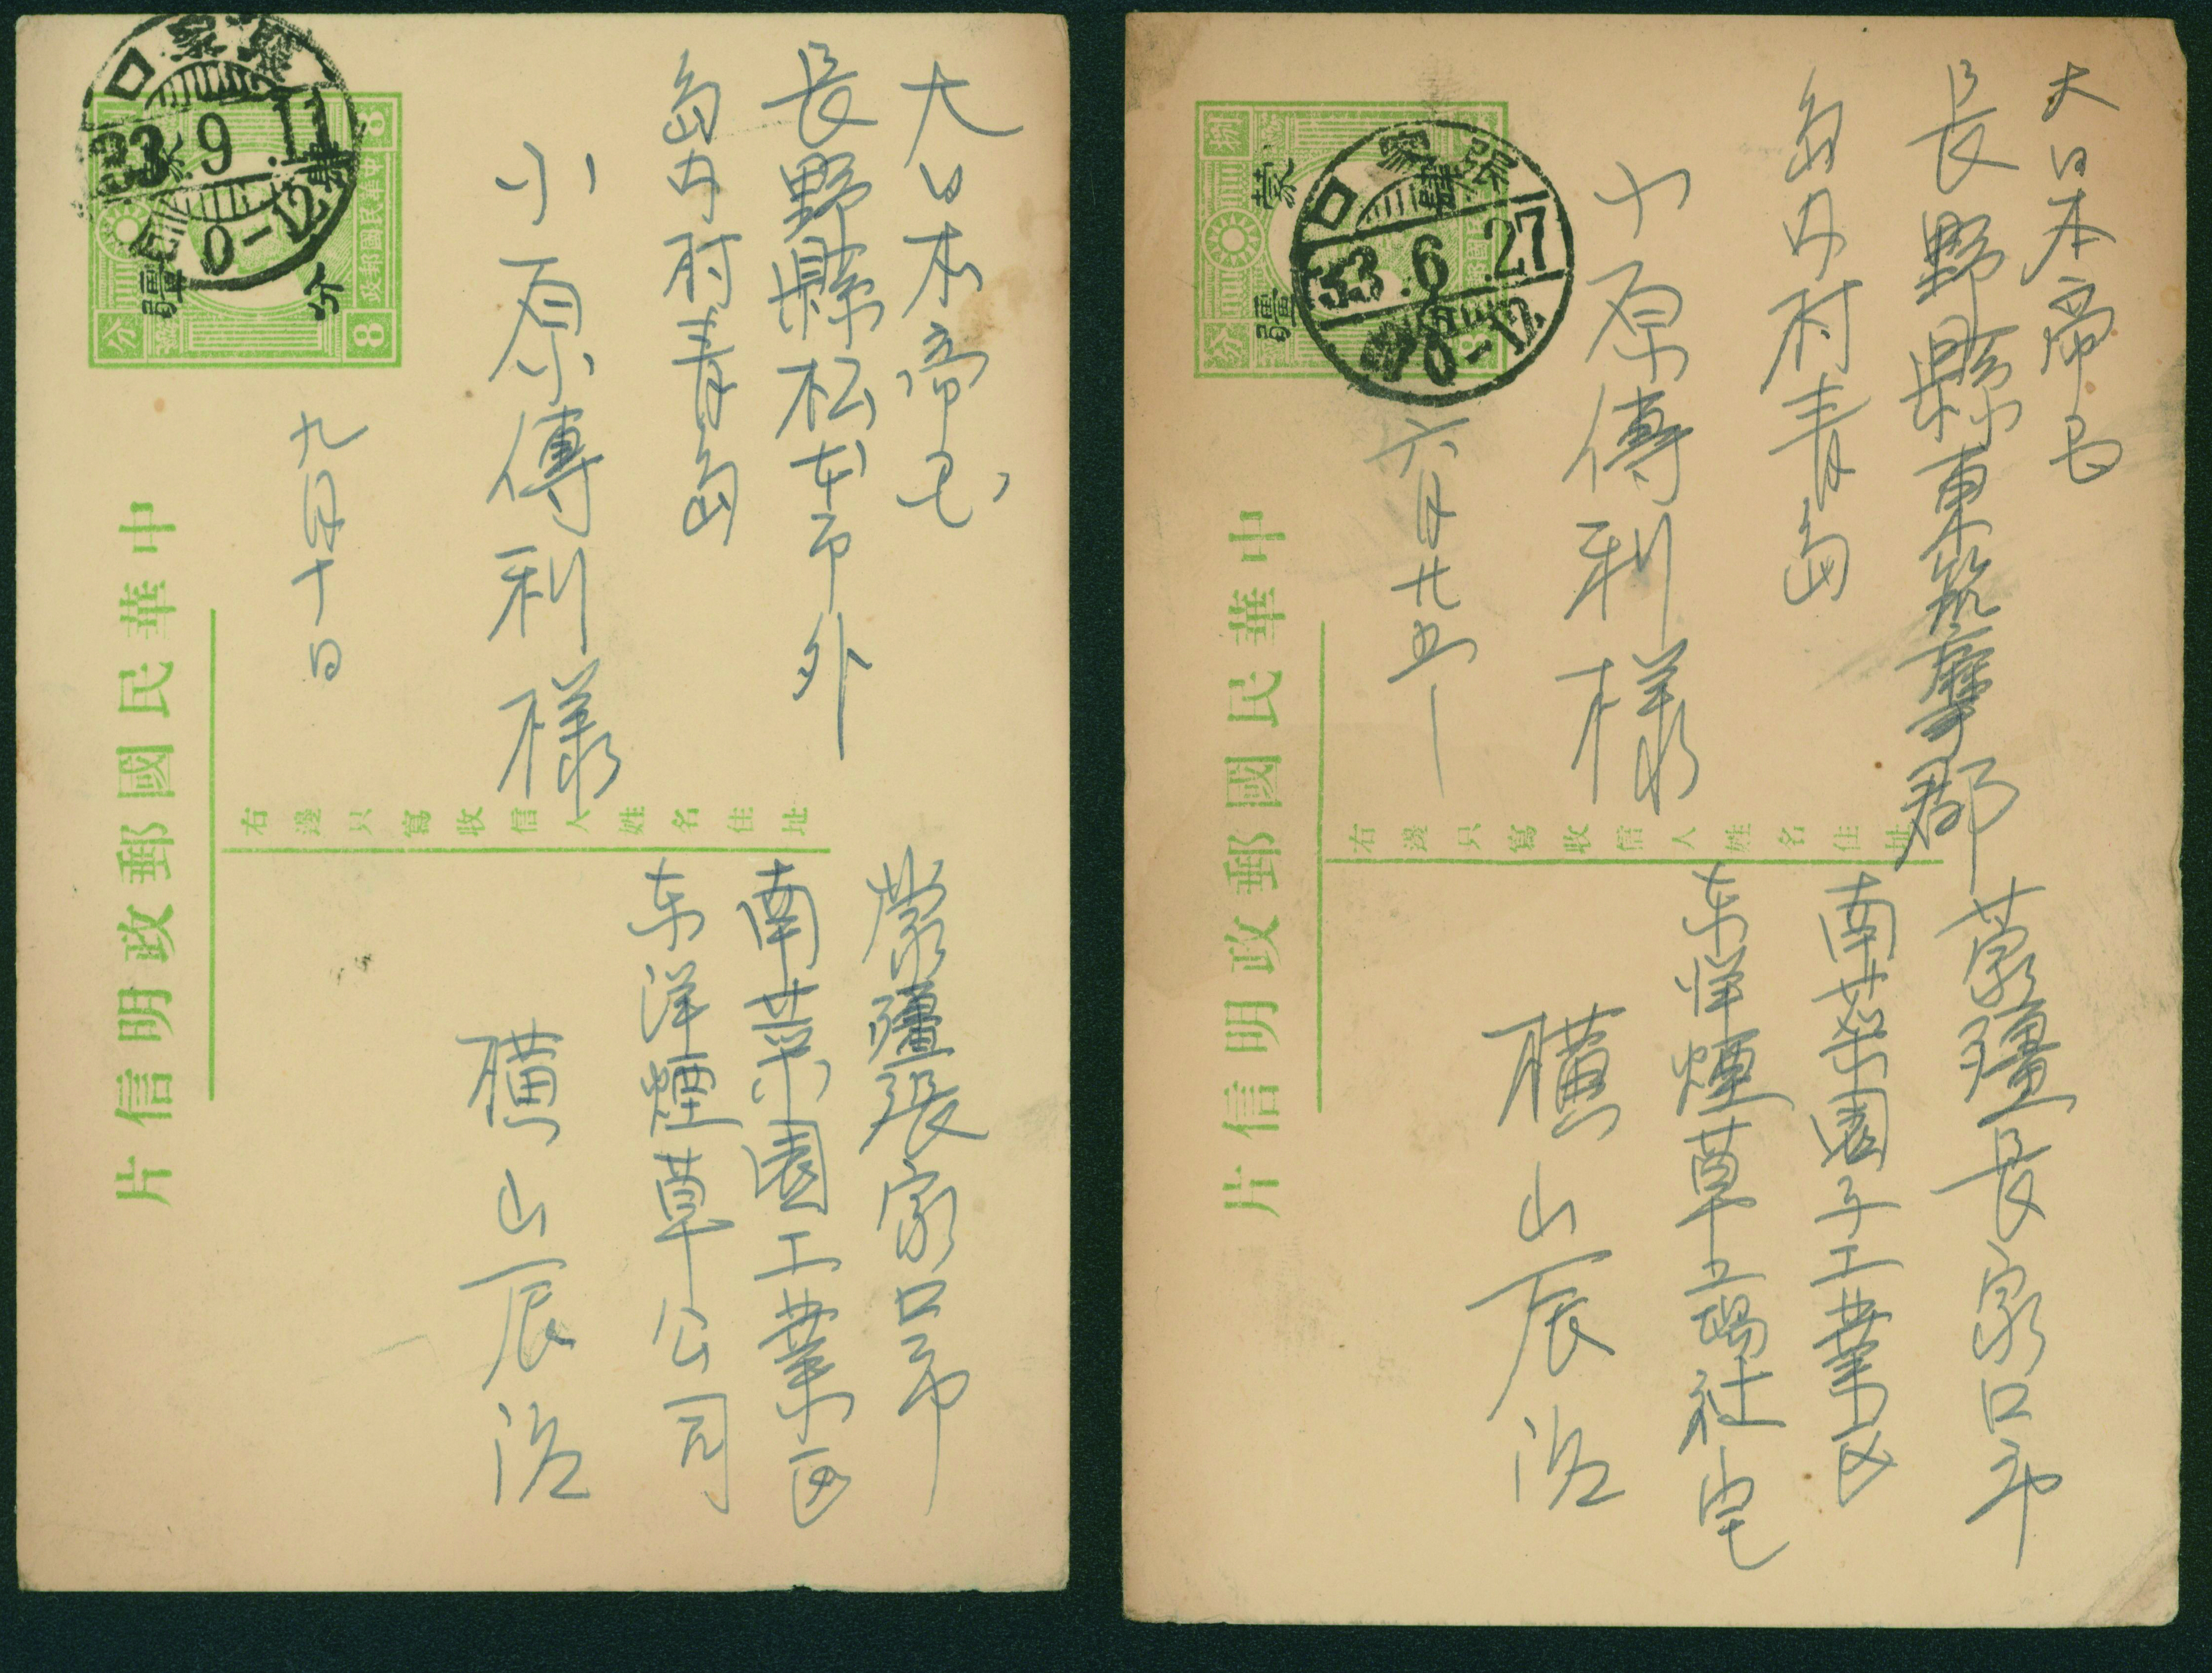 大日本帝国
長野縣松本市外
島内村青島
小原傳利様
九月十日
蒙疆張家口市
南菜園工業区
东洋煙草公司
横山辰治
中華民國郵政明信片
右邊只寫收信人姓名住址
張家口
33.9.11
0-12
蒙疆
分
8
8
中華民國郵政
大日本帝国
長野縣東筑摩郡
島内村青島
小原傳利様
六月廿五
蒙疆長家口市
南菜園子工業区
东洋煙草工場社宅
横山辰治
中華民國郵政明信片
右邊只寫收信人姓名住址
張家口
33.6.27
0-12
蒙疆